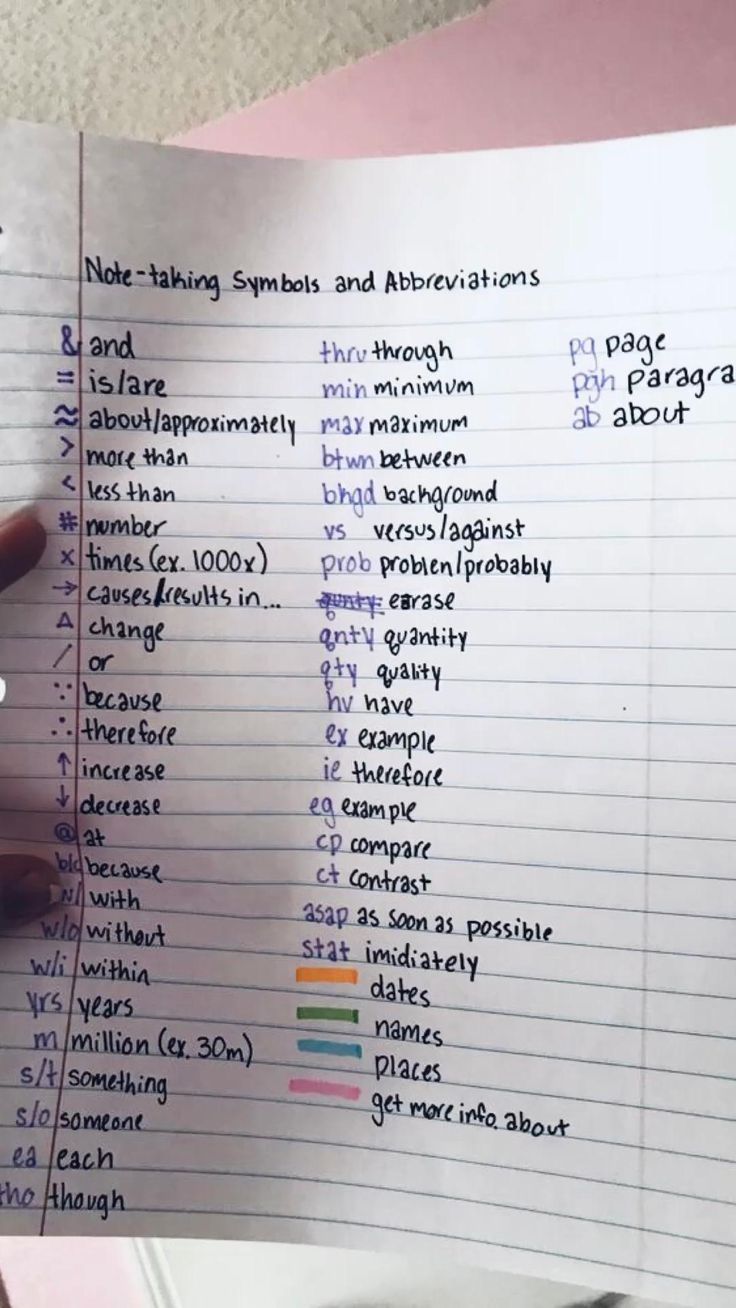 Note-taking Symbols and Abbreviations
& and
= is/are
≈ about/approximately
> more than
< less than
# number
x times (ex. 1000x)
→ causes/results in...
Δ change
/ or
∵ because
∴ therefore
↑ increase
↓ decrease
@ at
b/c because
w/ with
w/o without
w/i within
yrs years
m million (ex. 30m)
s/t something
s/o someone
ea each
tho though
thru through
min minimum
max maximum
btwn between
bkgd background
vs versus/against
prob problen/probably
erase
qnty quantity
qty quality
hv have
ex example
ie therefore
eg example
cp compare
ct contrast
asap as soon as possible
stat imidiately
dates
names
places
get more info. about
pg page
pgh paragra
ab about